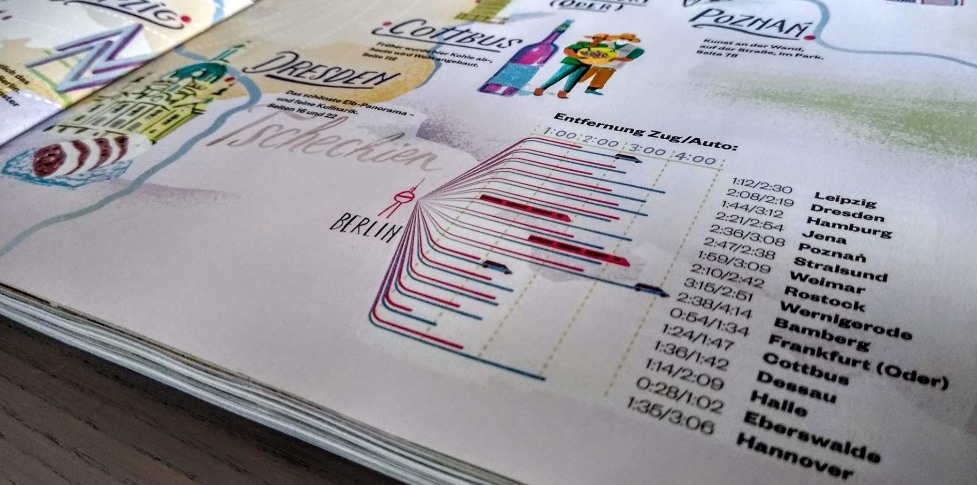 COTTBUS
Früher wurde hier Kohle ab-
Seite 112
POZNAŃ
Kunst an der Wand,
auf der Straße, im Park.
Seite 78
DRESDEN
Das schönste Elb-Panorama –
und feine Kulinarik.
Seiten 16 und 22
Tschechien
BERLIN
Entfernung Zug/Auto:
1:00 2:00 3:00 4:00
1:12/2:30 Leipzig
2:08/2:19 Dresden
1:44/3:12 Hamburg
2:21/2:54 Jena
2:36/3:08 Poznań
2:47/2:38 Stralsund
1:59/3:09 Weimar
2:10/2:42 Rostock
3:15/2:51 Wernigerode
2:38/4:14 Bamberg
0:54/1:34 Frankfurt (Oder)
1:24/1:47 Cottbus
1:36/1:42 Dessau
1:14/2:09 Halle
0:28/1:02 Eberswalde
1:35/3:06 Hannover